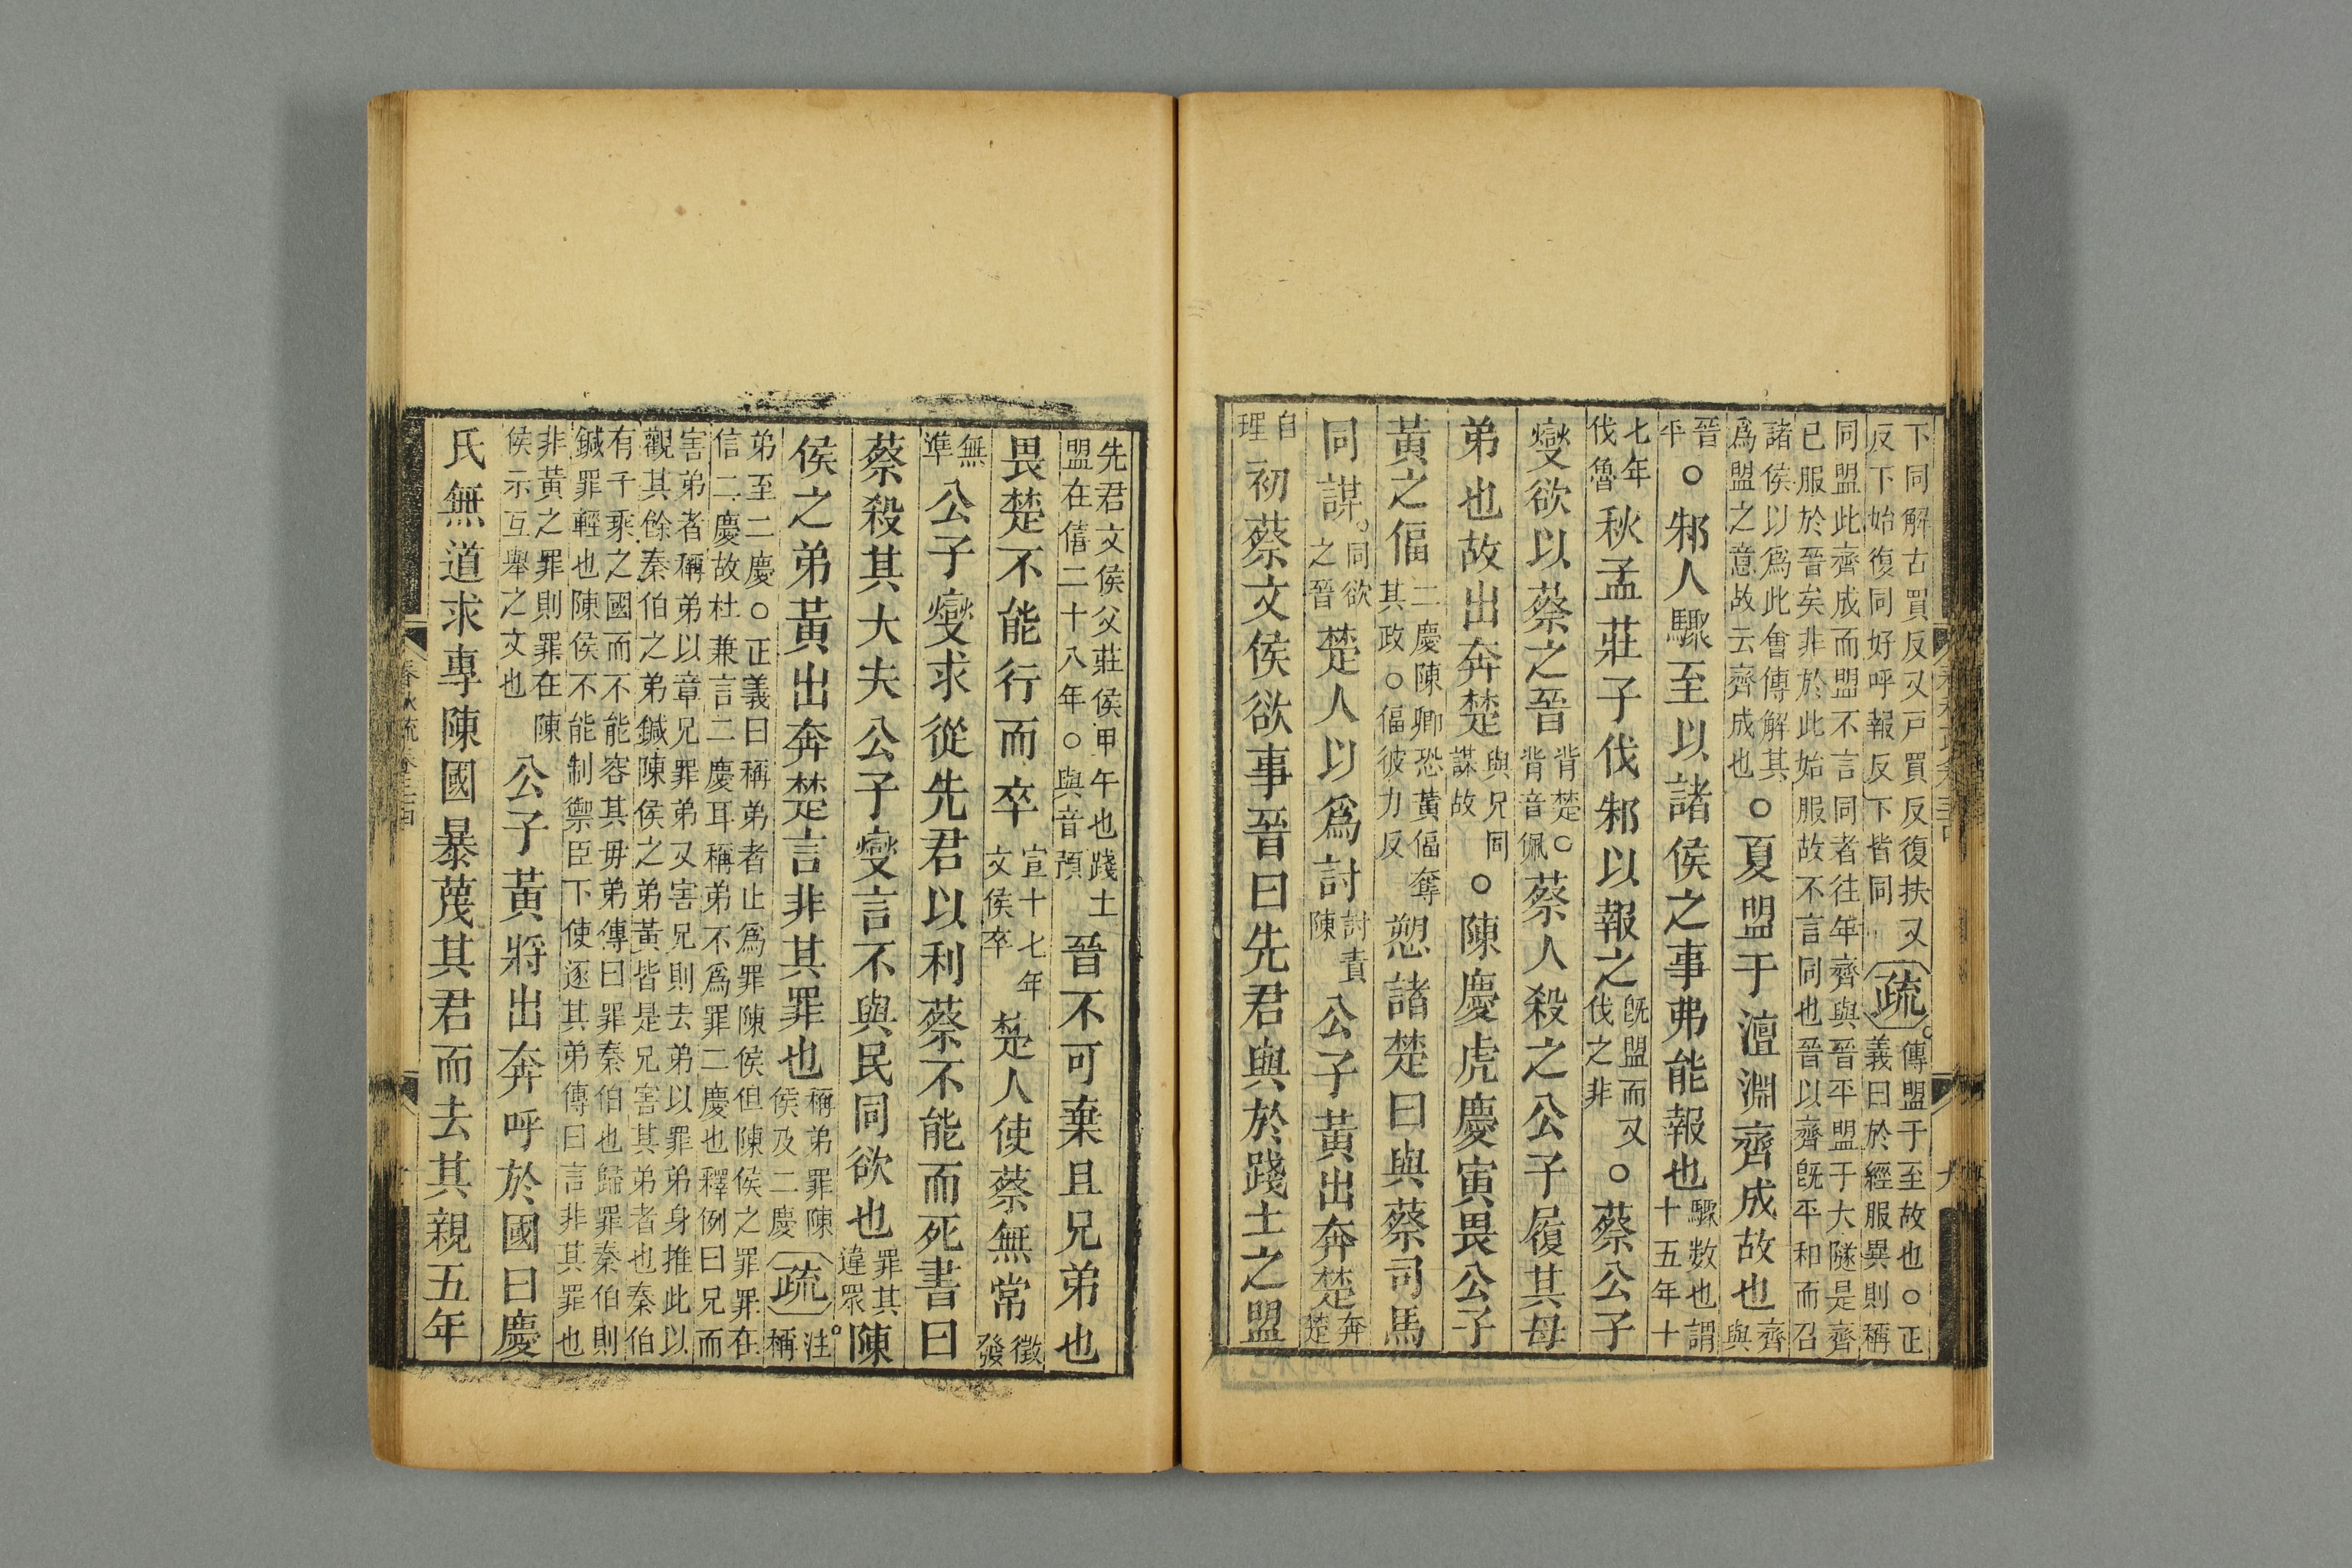 下同解古買反又戸買反復扶又
反下始復同好呼報反下皆同
疏
傳盟于至故也○正
義曰於經服異則稱
同盟此齊成而盟不言同者往年齊與晉平盟于大隧是齊
已服於晉矣非於此始服故不言同也晉以齊既平和而召
諸侯以爲此會傳解其
爲盟之意故云齊成也
○夏盟于澶淵齊成故也
齊
與
晉
平
○邾人驟至以諸侯之事弗能報也
驟數也謂
十五年十
七年
伐魯
秋孟莊子伐邾以報之
既盟而又
伐之非
○蔡公子
燮欲以蔡之晉
背楚○
背音佩
蔡人殺之公子履其母
弟也故出奔楚
與兄同
謀故
○陳慶虎慶寅畏公子
黃之偪
二慶陳卿恐黃偪奪
其政○偪彼力反
愬諸楚曰與蔡司馬
同謀
同欲
之晉
楚人以爲討
討責
陳
公子黃出奔楚
奔
楚
自
理
初蔡文侯欲事晉曰先君與於踐土之盟
先君文侯父莊侯甲午也踐土
盟在僖二十八年○與音預
晉不可棄且兄弟也
畏楚不能行而卒
宣十七年
文侯卒
楚人使蔡無常
徵
發
無
準
公子燮求從先君以利蔡不能而死書曰
蔡殺其大夫公子燮言不與民同欲也
罪其
違眾
陳
侯之弟黃出奔楚言非其罪也
稱弟罪陳
侯及二慶
疏
注
稱
弟至二慶○正義曰稱弟者止爲罪陳侯但陳侯之罪罪在
信二慶故杜兼言二慶耳稱弟不爲罪二慶也釋例曰兄而
害弟者稱弟以章兄罪弟又害兄則去弟以罪弟身推此以
觀其餘秦伯之弟鍼陳侯之弟黃皆是兄害其弟者也秦伯
有千乘之國而不能容其母弟傳曰罪秦伯也歸罪秦伯則
鍼罪輕也陳侯不能制禦臣下使逐其弟傳曰言非其罪也
非黃之罪則罪在陳
侯示互舉之文也
公子黃將出奔呼於國曰慶
氏無道求專陳國暴蔑其君而去其親五年